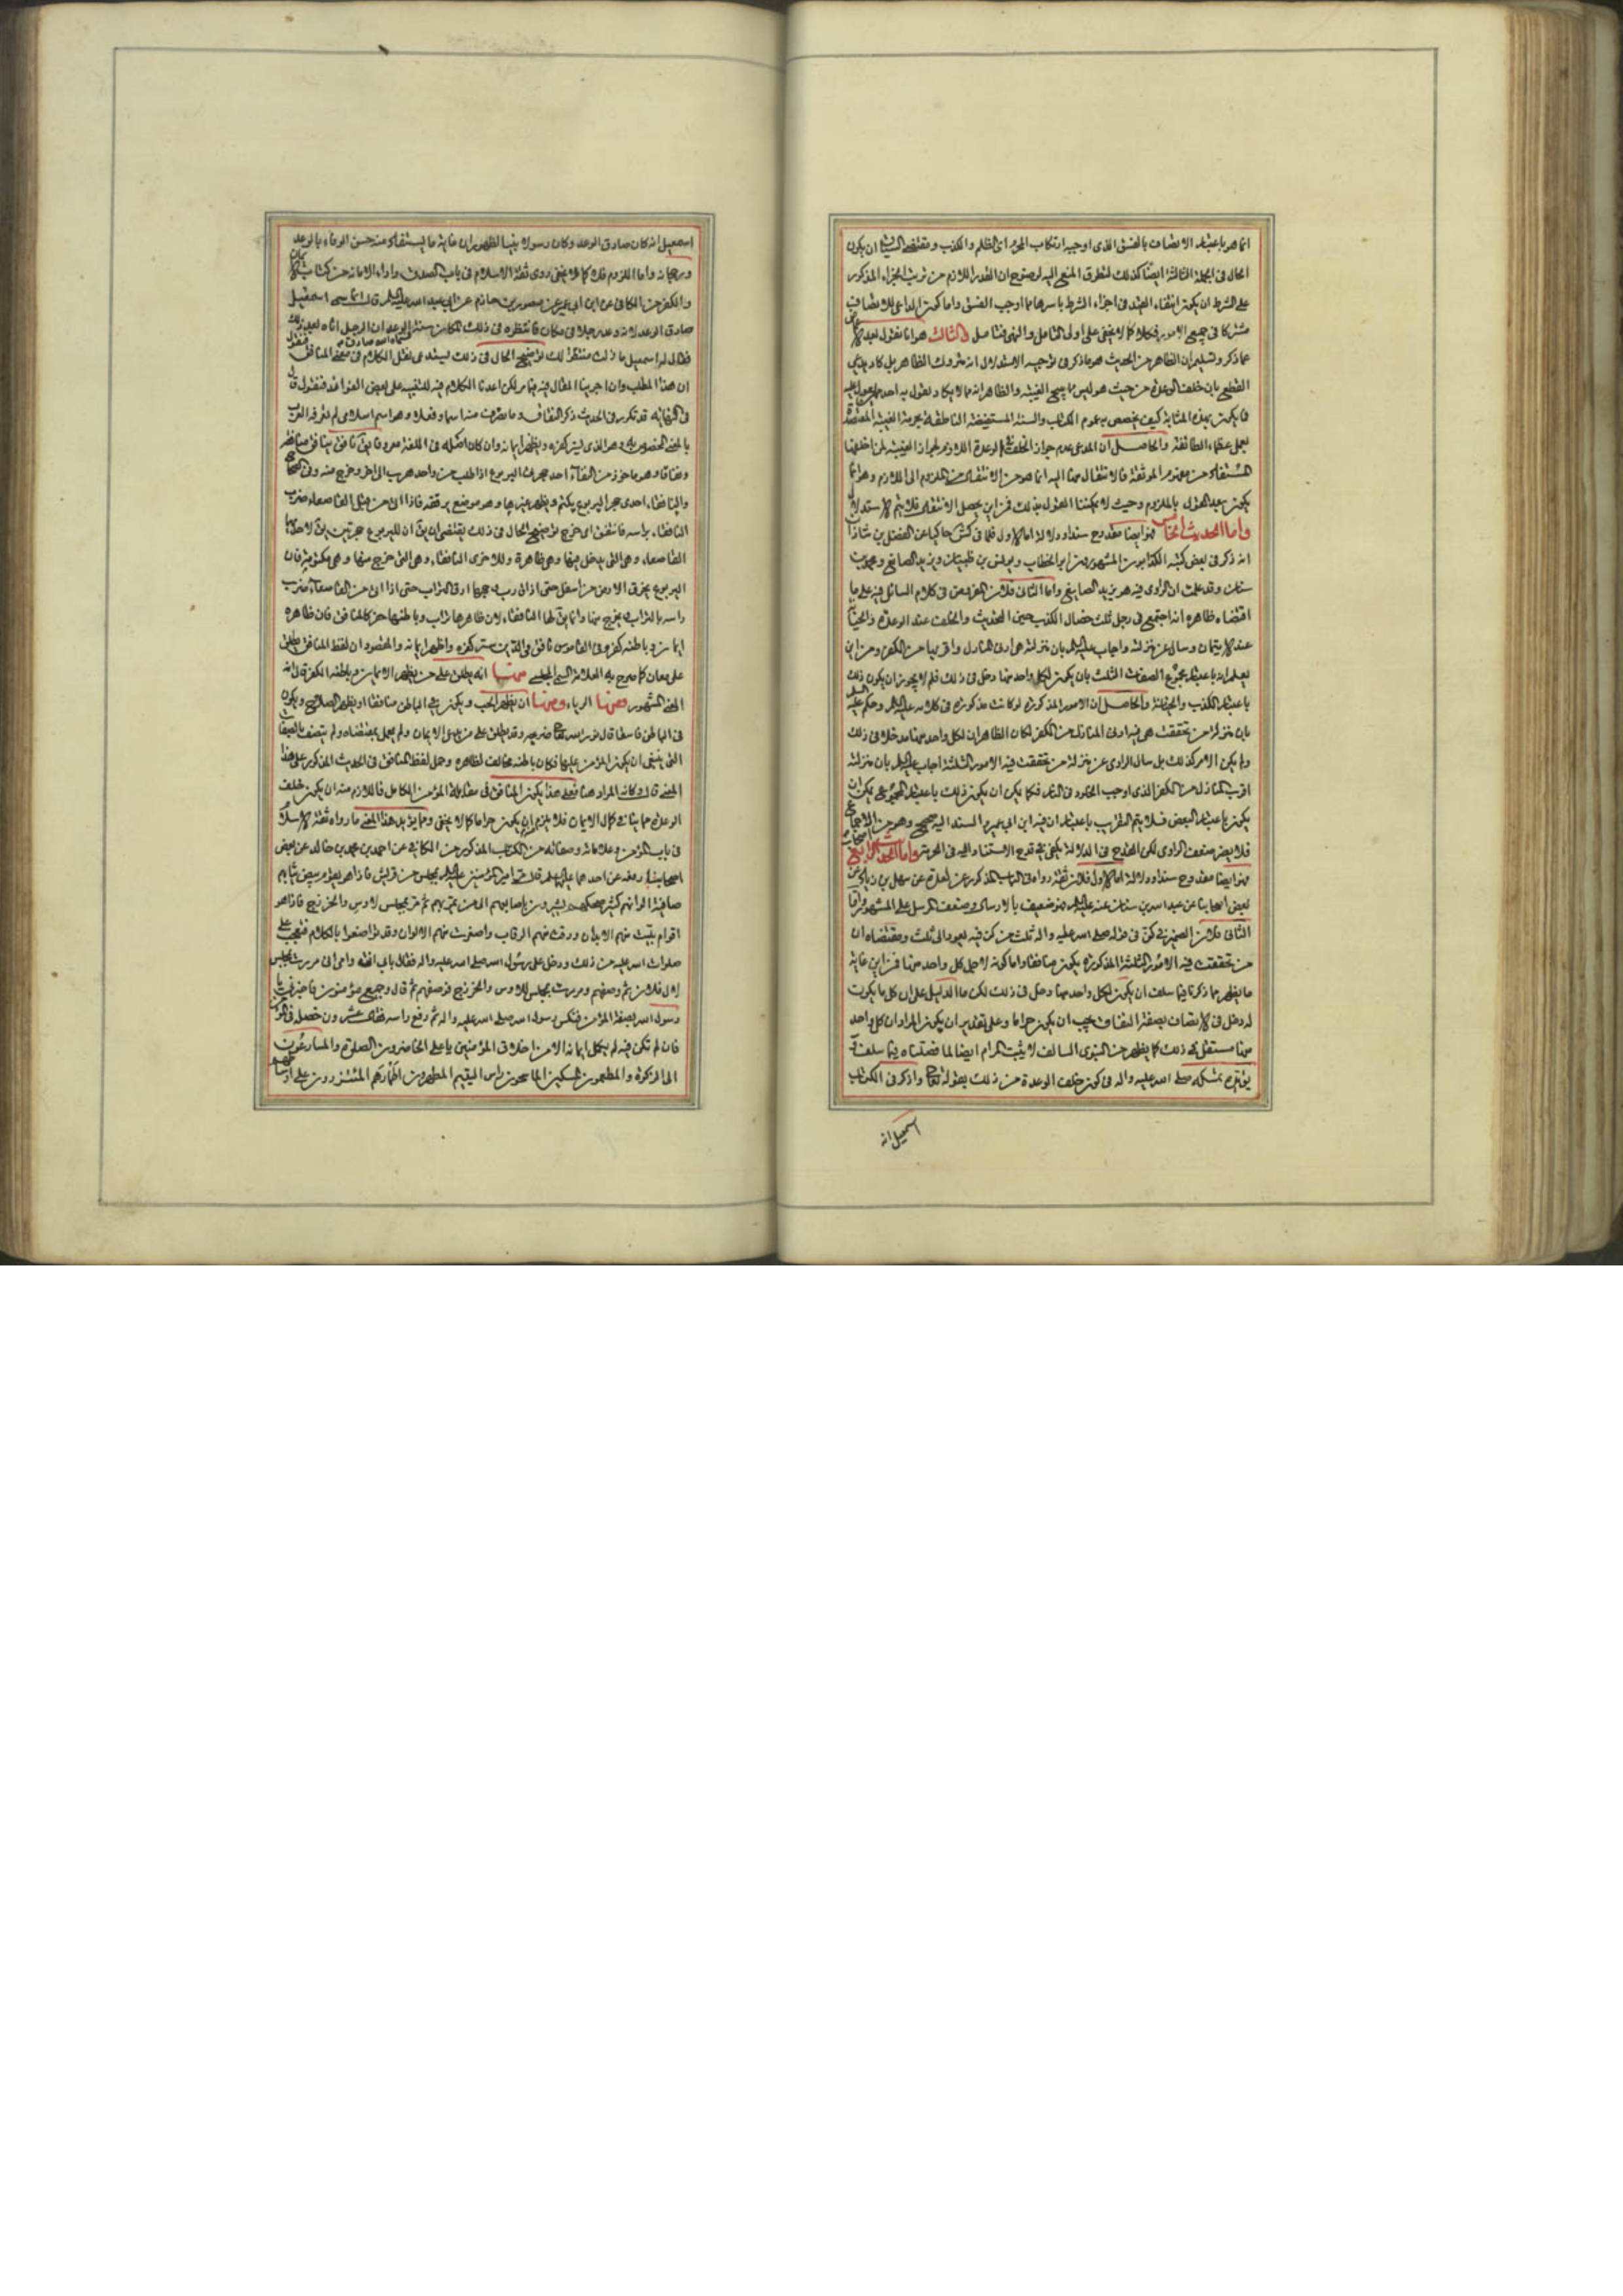 انما هو باعتبار الاتصاف بالفسق الذى اوجبه ارتكاب المحرم اى الظلم والكذب ومقتضى السياق ان يكون
الحال فى الجملة الثالثة ايضا كذلك لتطرق المنع اليه لوضوح ان القدر اللازم من ترتب الجزاء المذكور
على الشرط ان يكون انتفاء القيد فى اجزاء الشرط باسرها مما اوجب الفسق واما كون الداعى للاتصاف
مشتركا فى جميع الامور فكلا كما لا يخفى على اولى التامل والنهى فتامل والثالث هو انا نقول بعد
عما ذكر وتسليم ان الظاهر من الحديث هو ما ذكر فى توجيه الاستدلال انه متروك الظاهر بل كاد
القطع بان خلف الوعد من حيث هو ليس مما يبيح الغيبة والظاهر انه مما لا يكاد يقول به احد
فما يكون بهذه المثابة كيف يخصص به عموم الكتاب والسنة المستفيضة الناطقة بحرمة الغيبة المعتضدة
بعمل عظماء الطائفة والحاصل ان المدعى عدم جواز الخلف فى الوعدة اللازم لجواز الغيبة لمن اخلفها
المستفاد من مفهوم الموثقة فالانتقال منها اليه انما هو من الانتقال من الملزوم الى اللازم وهو انما
يكون بعد القول بالملزوم وحيث لا يمكننا القول بذلك فمن اين يحصل الانتقال فلا يتم الاستدلال
واما الحديث الثالث فهو ايضا مقدوح سندا ودلالة اما الاول فلما فى كش حاكيا عن الفضل بن شاذان
انه ذكر فى بعض كتبه الكذابون المشهورون ابو الخطاب ويونس بن ظبيان ويزيد الصايغ ومحمد بن
سنان وقد علمت ان الراوى فيه هو يزيد الصايغ واما الثانى فلان المفروض فى كلام السائل فيه على ما
اقتضاه ظاهره انه اجتمع فى رجل ثلث خصال الكذب حين الحديث والخلف عند الوعد والخيانة
عند الايتمان وسال عن منزلته واجاب عليه السلم بان منزلته هى ادنى المنازل واقربها من الكفر ومن اين
يعلم انه باعتبار مجموع الصفات الثلث بان يكون لكل واحد منها دخل فى ذلك فلم لا يجوز ان يكون ذلك
باعتبار الكذب والخيانة والحاصل ان الامور المذكورة لو كانت مذكورة فى كلامه عليه السلم وحكم عليه السلم
بان منزلة من تحققت هى فيه ادنى المنازل من الكفر لكان الظاهر ان لكل واحد منها مدخلا فى ذلك
ولم يكن الامر كذلك بل سال الراوى عن منزلة من تحققت فيه الامور الثلثة اجاب عليه السلم بان منزلته
اقرب المنازل من الكفر الذى اوجب الخلود فى النار فكما يمكن ان يكون ذلك باعتبار المجموع يمكن ان
يكون باعتبار البعض فلا يتم التقريب باعتبار ان فيه ابن ابى عمير والسند اليه صحيح وهو من
فلا يضر ضعف الراوى لكن القدح فى الدلالة يكفى فى قدح الاستناد اليه فى الحرمة واما الحديث الرابع
فهو ايضا مقدوح سندا ودلالة اما الاول فلان ثقة رواه فى الباب المذكور عن العدة عن سهل بن زياد عن
بعض اصحابنا عن عبد الله بن سنان عنه عليه السلم فهو ضعيف بالارسال وضعف سهل على المشهور واما
الثانى فلان الضمير فى كن فى قوله صلى الله عليه واله ثلث من كن فيه يعود الى ثلث ومقتضاه ان
من تحققت فيه الامور الثلثة المذكورة يكون منافقا واما كونه لاجل كل واحد منها فمن اين غاية
ما يظهر مما ذكرنا فيما سلف ان يكون لكل واحد منها دخل فى ذلك لكن ما الدليل على ان كل ما يكون
له دخل فى الاتصاف بصفة النفاق يجب ان يكون حراما وعلى تقدير ان يكون المراد ان كل واحد
منها مستقل فى ذلك كما يظهر من النبوى السالف لا يثبت المرام ايضا لما فصلناه فيما سلف
يؤيده تمسكه صلى الله عليه واله فى كون خلف الوعدة من ذلك بقوله تعالى واذكر فى الكتاب
اسمعيل انه
اسمعيل انه كان صادق الوعد وكان رسولا نبيا لظهور ان غاية ما يستفاد منه حسن الوفاء بالوعد
ورجحانه واما اللزوم فلا كما لا يخفى روى ثقة الاسلام فى باب الصدق واداء الامانة من كتاب الايمان
والكفر من الكافى عن ابن ابى عمير عن منصور بن حازم عن ابى عبد الله عليه السلم قال انما سمى اسمعيل
صادق الوعد لانه وعد رجلا فى مكان فانتظره فى ذلك المكان سنة فسماه الله صادق الوعد ان الرجل اتاه بعد ذلك
فقال له اسمعيل ما زلت منتظرا لك توضيح الحال فى ذلك يستدعى نقل الكلام فى معنى المنافق فنقول
ان هذا المطلب وان اجرينا المقال فيه فيما مر لكن اعدنا الكلام فيه للتنبيه على بعض الفوائد فنقول قال
فى النهاية قد تكرر فى الحديث ذكر النفاق وما تصرف منه اسما وفعلا وهو اسم اسلامى لم تعرفه العرب
بالمعنى المخصوص به وهو الذى يستر كفره ويظهر ايمانه وان كان اصله فى اللغة معروفا يق نافق ينافق منافقة
ونفاقا وهو ماخوذ من النافقاء احد جحرة اليربوع اذا طلب من واحد هرب الى الاخر وخرج منه وفى الصحاح
والنافقاء احدى جحرة اليربوع يكتمها ويظهر غيرها وهو موضع يرققه فاذا اتى من قبل القاصعاء ضرب
النافقاء براسه فانتفق اى خرج توضيح الحال فى ذلك يقتضى ان يق ان لليربوع جحرتين يق لاحديهما
القاصعاء وهى التى يدخل فيها وهى ظاهرة وللاخرى النافقاء وهى التى خرج منها وهى مكتومة فان
اليربوع يخرق الارض من اسفل حتى اذا قرب وجهها ارق التراب حتى اذا اتى من القاصعاء ضرب
راسه بالتراب فيخرج منها وانما يق لها النافقاء لان ظاهرها تراب وباطنها حفر كالمنافق فان ظاهره
ايمان وباطنه كفر وفى القاموس نافق فى الدين ستر كفره واظهر ايمانه والمقصود ان لفظ المنافق يطلق
على معان كما صرح به العلامة السمى المجلسى منها انه يطلق على من يظهر الاسلام ويبطن الكفر قال انه
المعنى المشهور ومنها الرياء ومنها ان يظهر الحب ويكون فى الباطن منافقا او يظهر الصلاح ويكون
فى الباطن فاسقا قال نور الله تعالى ضريحه وقد يطلق على من يدعى الايمان ولم يعمل بمقتضاه ولم يتصف بالصفات
التى ينبغى ان يكون المؤمن عليها فكان باطنه مخالف لظاهره وحمل لفظ المنافق فى الحديث المذكور على هذا
المعنى قال وكانه المراد هنا فعلى هذا يكون المنافق فى مقابلة المؤمن الكامل فاللازم منه ان يكون خلف
الوعدة مما ينافى كمال الايمان فلا يلزم ان يكون حراما كما لا يخفى ومما يؤيد هذا المعنى ما رواه ثقة الاسلام
فى باب المؤمن وعلاماته وصفاته من الكتاب المذكور من الكافى عن احمد بن محمد بن خالد عن بعض
اصحابنا رفعه عن احدهما عليهما السلم قال مر امير المؤمنين عليه السلم بمجلس من قريش فاذا هو بقوم بيض ثيابهم
صافية الوانهم كثير ضحكهم يشيرون باصابعهم الى من يمر بهم ثم مر بمجلس للاوس والخزرج فاذا هو
اقوام بليت منهم الابدان ودقت منهم الرقاب واصفرت منهم الالوان وقد تواضعوا بالكلام فتعجب على
صلوات الله عليه من ذلك ودخل على رسول الله صلى الله عليه واله فقال بابى انت وامى انى مررت بمجلس
لال فلان ثم وصفهم ومررت بمجلس للاوس والخزرج فوصفهم ثم قال وجميع مؤمنون فاخبرنى يا
رسول الله بصفة المؤمن فنكس رسول الله صلى الله عليه واله ثم رفع راسه فقال عشرون خصلة فى المؤمن
فان لم تكن فيه لم يكمل ايمانه ان من اخلاق المؤمنين يا على الحاضرون الصلوة والمسارعون
الى الزكوة والمطعمون المسكين الماسحون راس اليتيم المطهرون اطمارهم المتزرون على اوساطهم